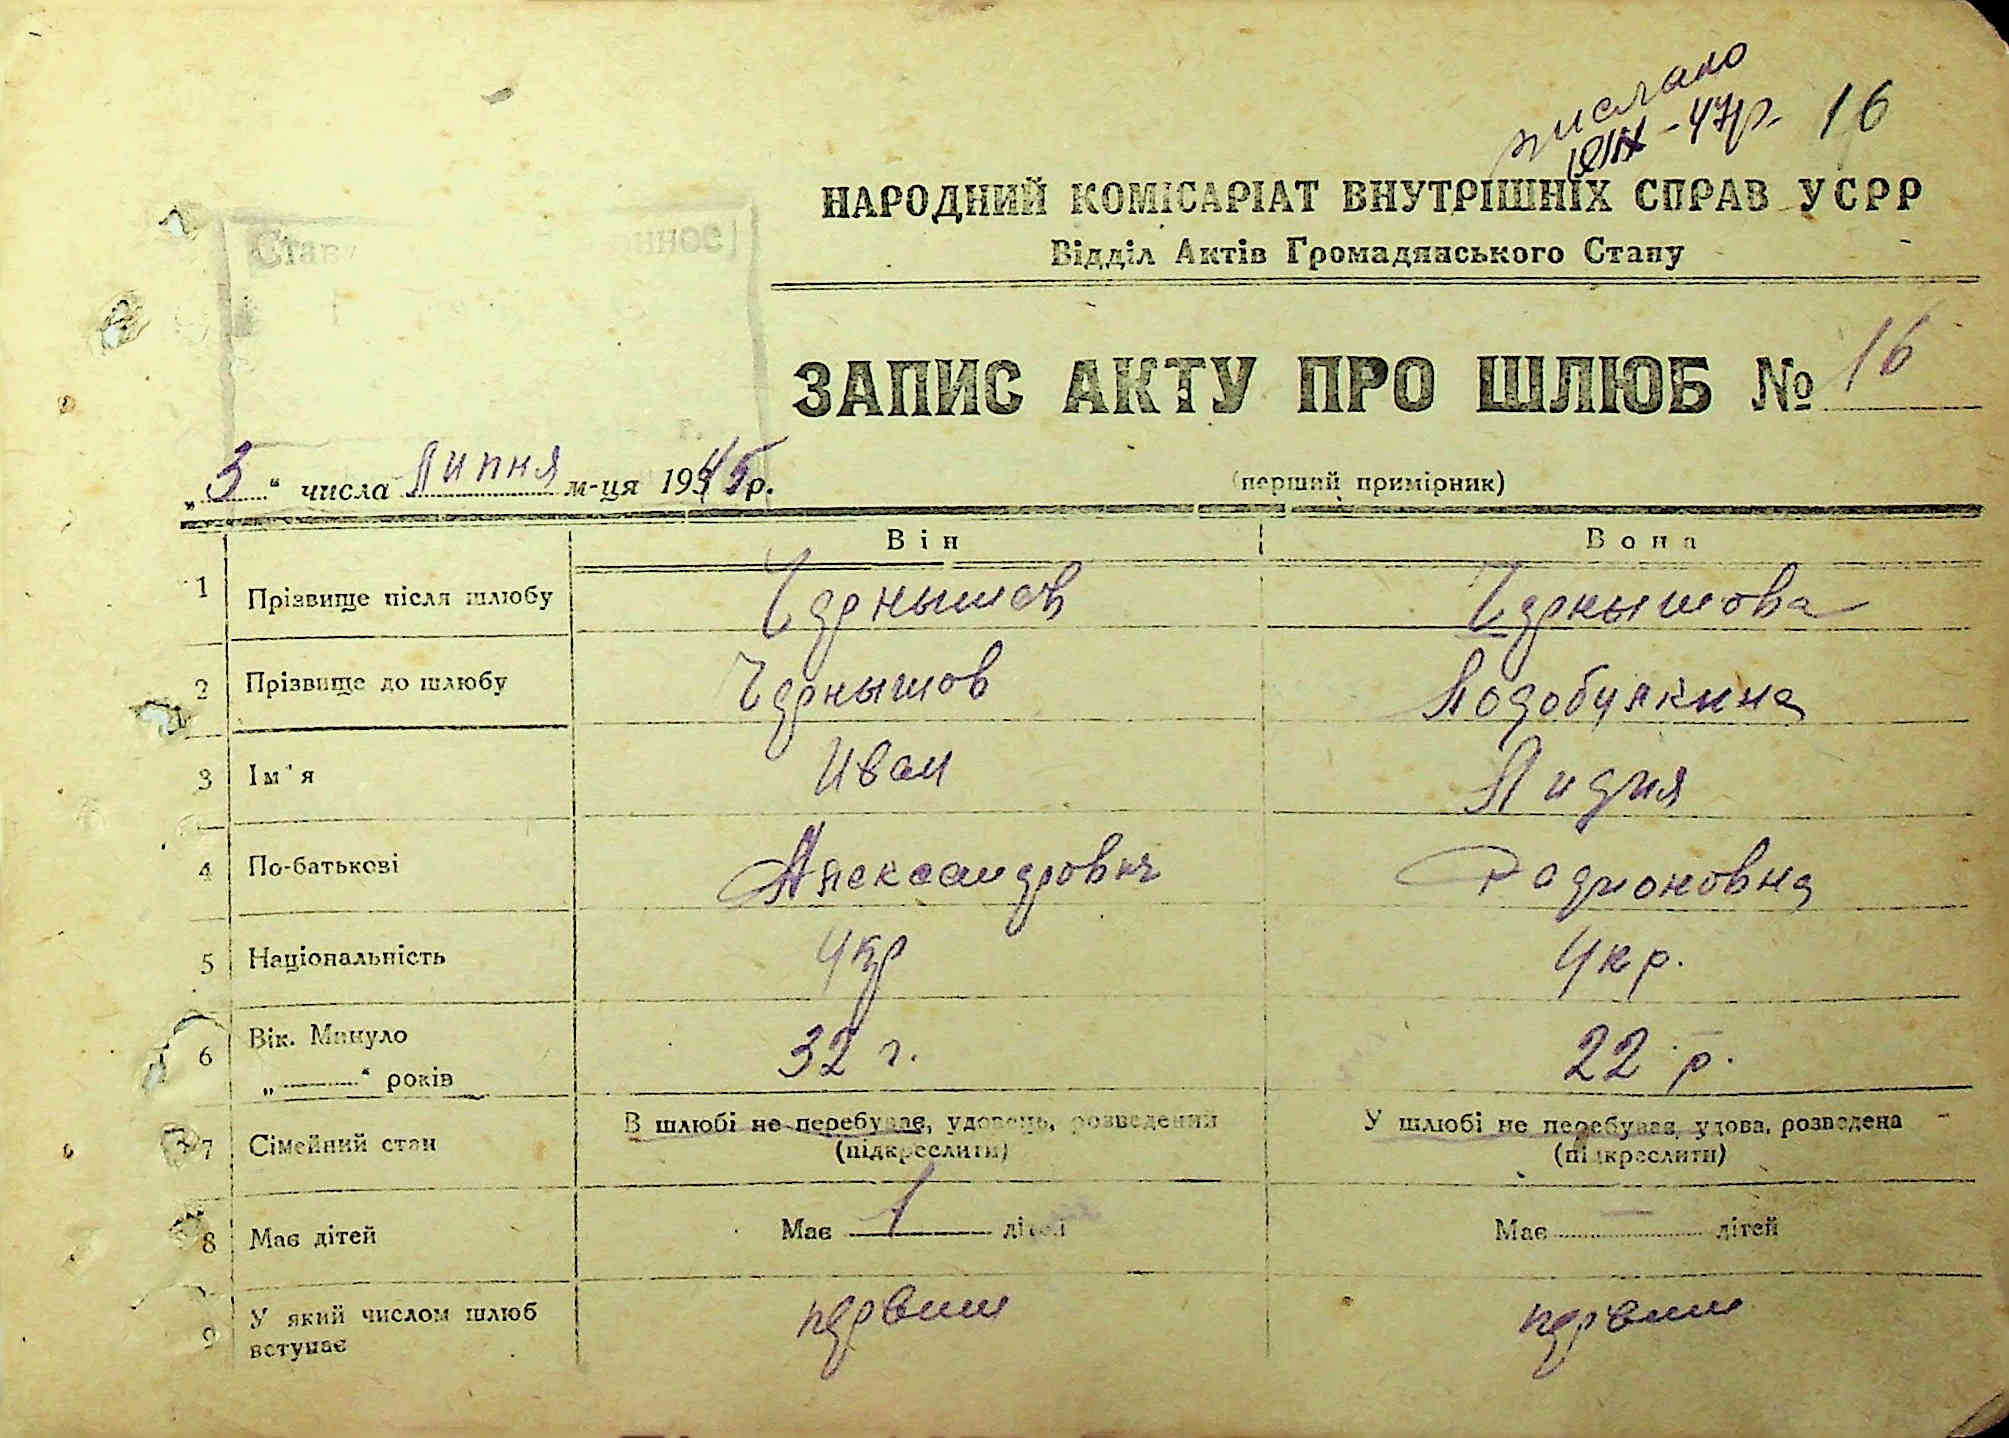 16
НАРОДНИЙ КОМІСАРІАТ ВНУТРІШНІХ СПРАВ УСРР
Відділ Актів Громадянського Стану
ЗАПИС АКТУ ПРО ШЛЮБ № 16
„3“ числа Липня м-ця 1945р.
(перший примірник)
Він Вона
1 Прізвище після шлюбу Чернышов Чернышова
2 Прізвище до шлюбу Чернышов
3 Ім'я Иван Лидия
4 По-батькові Александрович Радионовна
5 Національність Укр Укр.
6 Вік. Минуло 32 г. 22 р.
„ “ років
7 Сімейний стан В шлюбі не перебуває, удовець, розведений У шлюбі не перебуває, удова, розведена
(підкреслити) (підкреслити)
8 Має дітей Має 1 дітей Має — дітей
9 У який числом шлюб первши первши
вступає